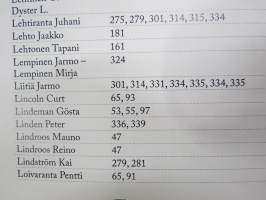 Dyster L.
Lehtiranta Juhani 275, 279, 301, 314, 315, 334
Lehto Jaakko 181
Lehtonen Tapani 161
Lempinen Jarmo – 324
Lempinen Mirja
Liitiä Jarmo 301, 314, 331, 334, 335, 334, 335
Lincoln Curt 65, 93
Lindeman Gösta 53, 55, 97
Linden Peter 336, 339
Lindroos Mauno 47
Lindroos Reino 47
Lindström Kai 279, 281
Loivaranta Pentti 65, 91